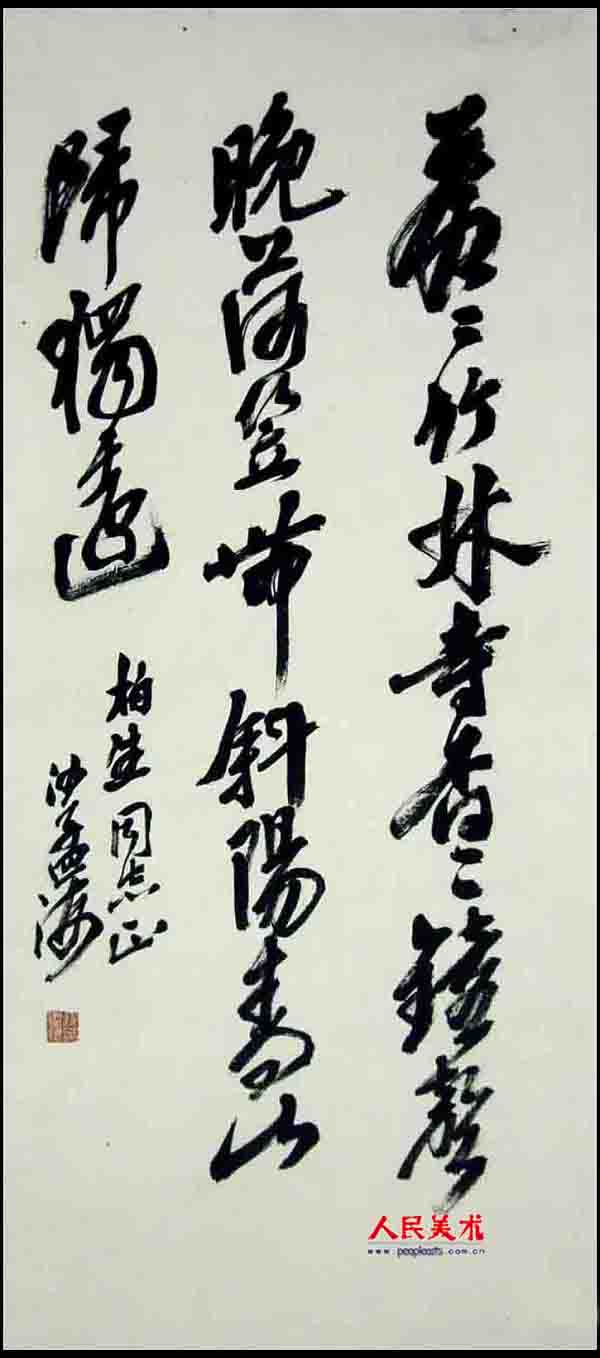 蒼〻竹林寺杳〻鐘聲
晚荷笠帶斜陽青山
歸獨遠
柏生同志正
沙孟海
人民美术
www.peoplearts.com.cn